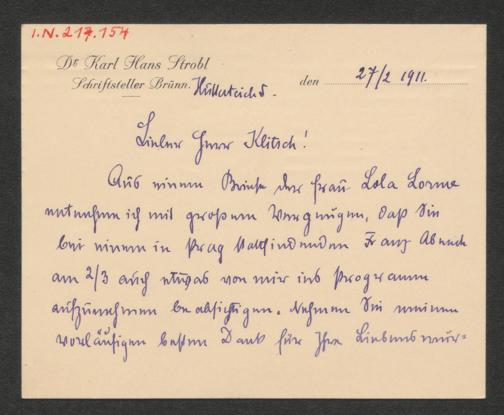 I.N. 217.154
Dr Karl Hans Strobl
Schriftsteller Brünn.
den 27/2 1911.
Lieber Herr Klitsch!
Aus einem Briefe der Frau Lola Lorme
entnehme ich mit großem Vergnügen, daß Sie
bei einem in Prag stattfindenden Abend
am 2/3 auch etwas von mir ins Programm
aufzunehmen beabsichtigen. Nehmen Sie meinen
vorläufigen besten Dank für Ihre Liebenswür=